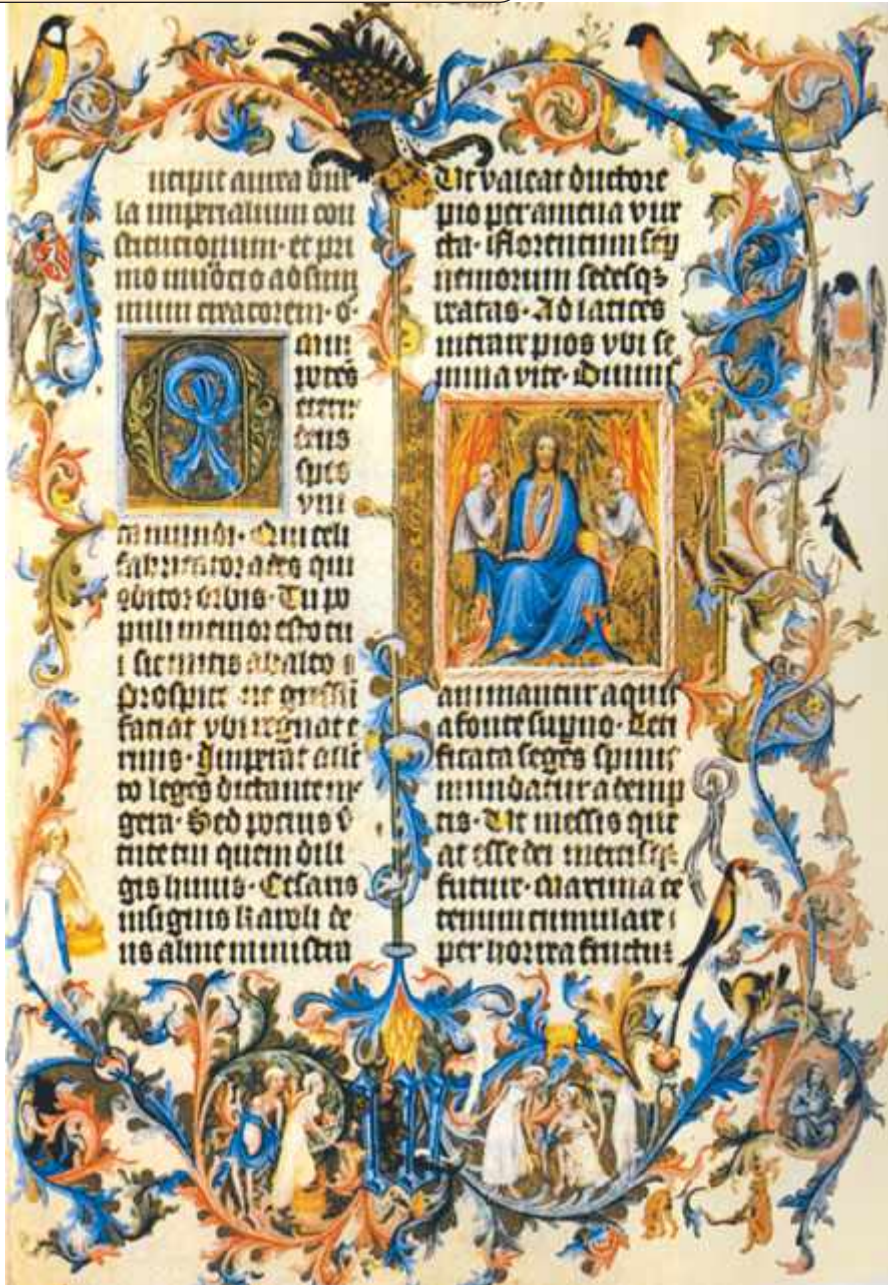 ncipit aurea bul
la imperialium con
stitucionum· et pri
mo ad sum
mum creatorem· o·
mni
potēs
eterne
deus
spes
vni
ca mundi· Qui celi
fabricator ades qui
orbis· Tu po
puli memor esto tu
i sic mitis ab alto
Prospice ne gressū
faciat vbi regnat e
rinis· Imperat alle
to leges dictante me
gera· Sed potius v
tute tui quem dili
gis huius· Cesaris
insignis karoli de
us alme ministra
Ut valeat ductore
pio per amena vire
cta· Florentum sep
nemorum sedesqꝫ
beatas· Ad latices
intrare pios vbi se
mina vite· Diuinis
animantur aquis
a fonte supno· Leti
ficata seges spinis
mundatur ademp
tis· Ut messis que
at esse dei mercisqꝫ
future· Maxima cē
tenum cumulare
per horrea fructus